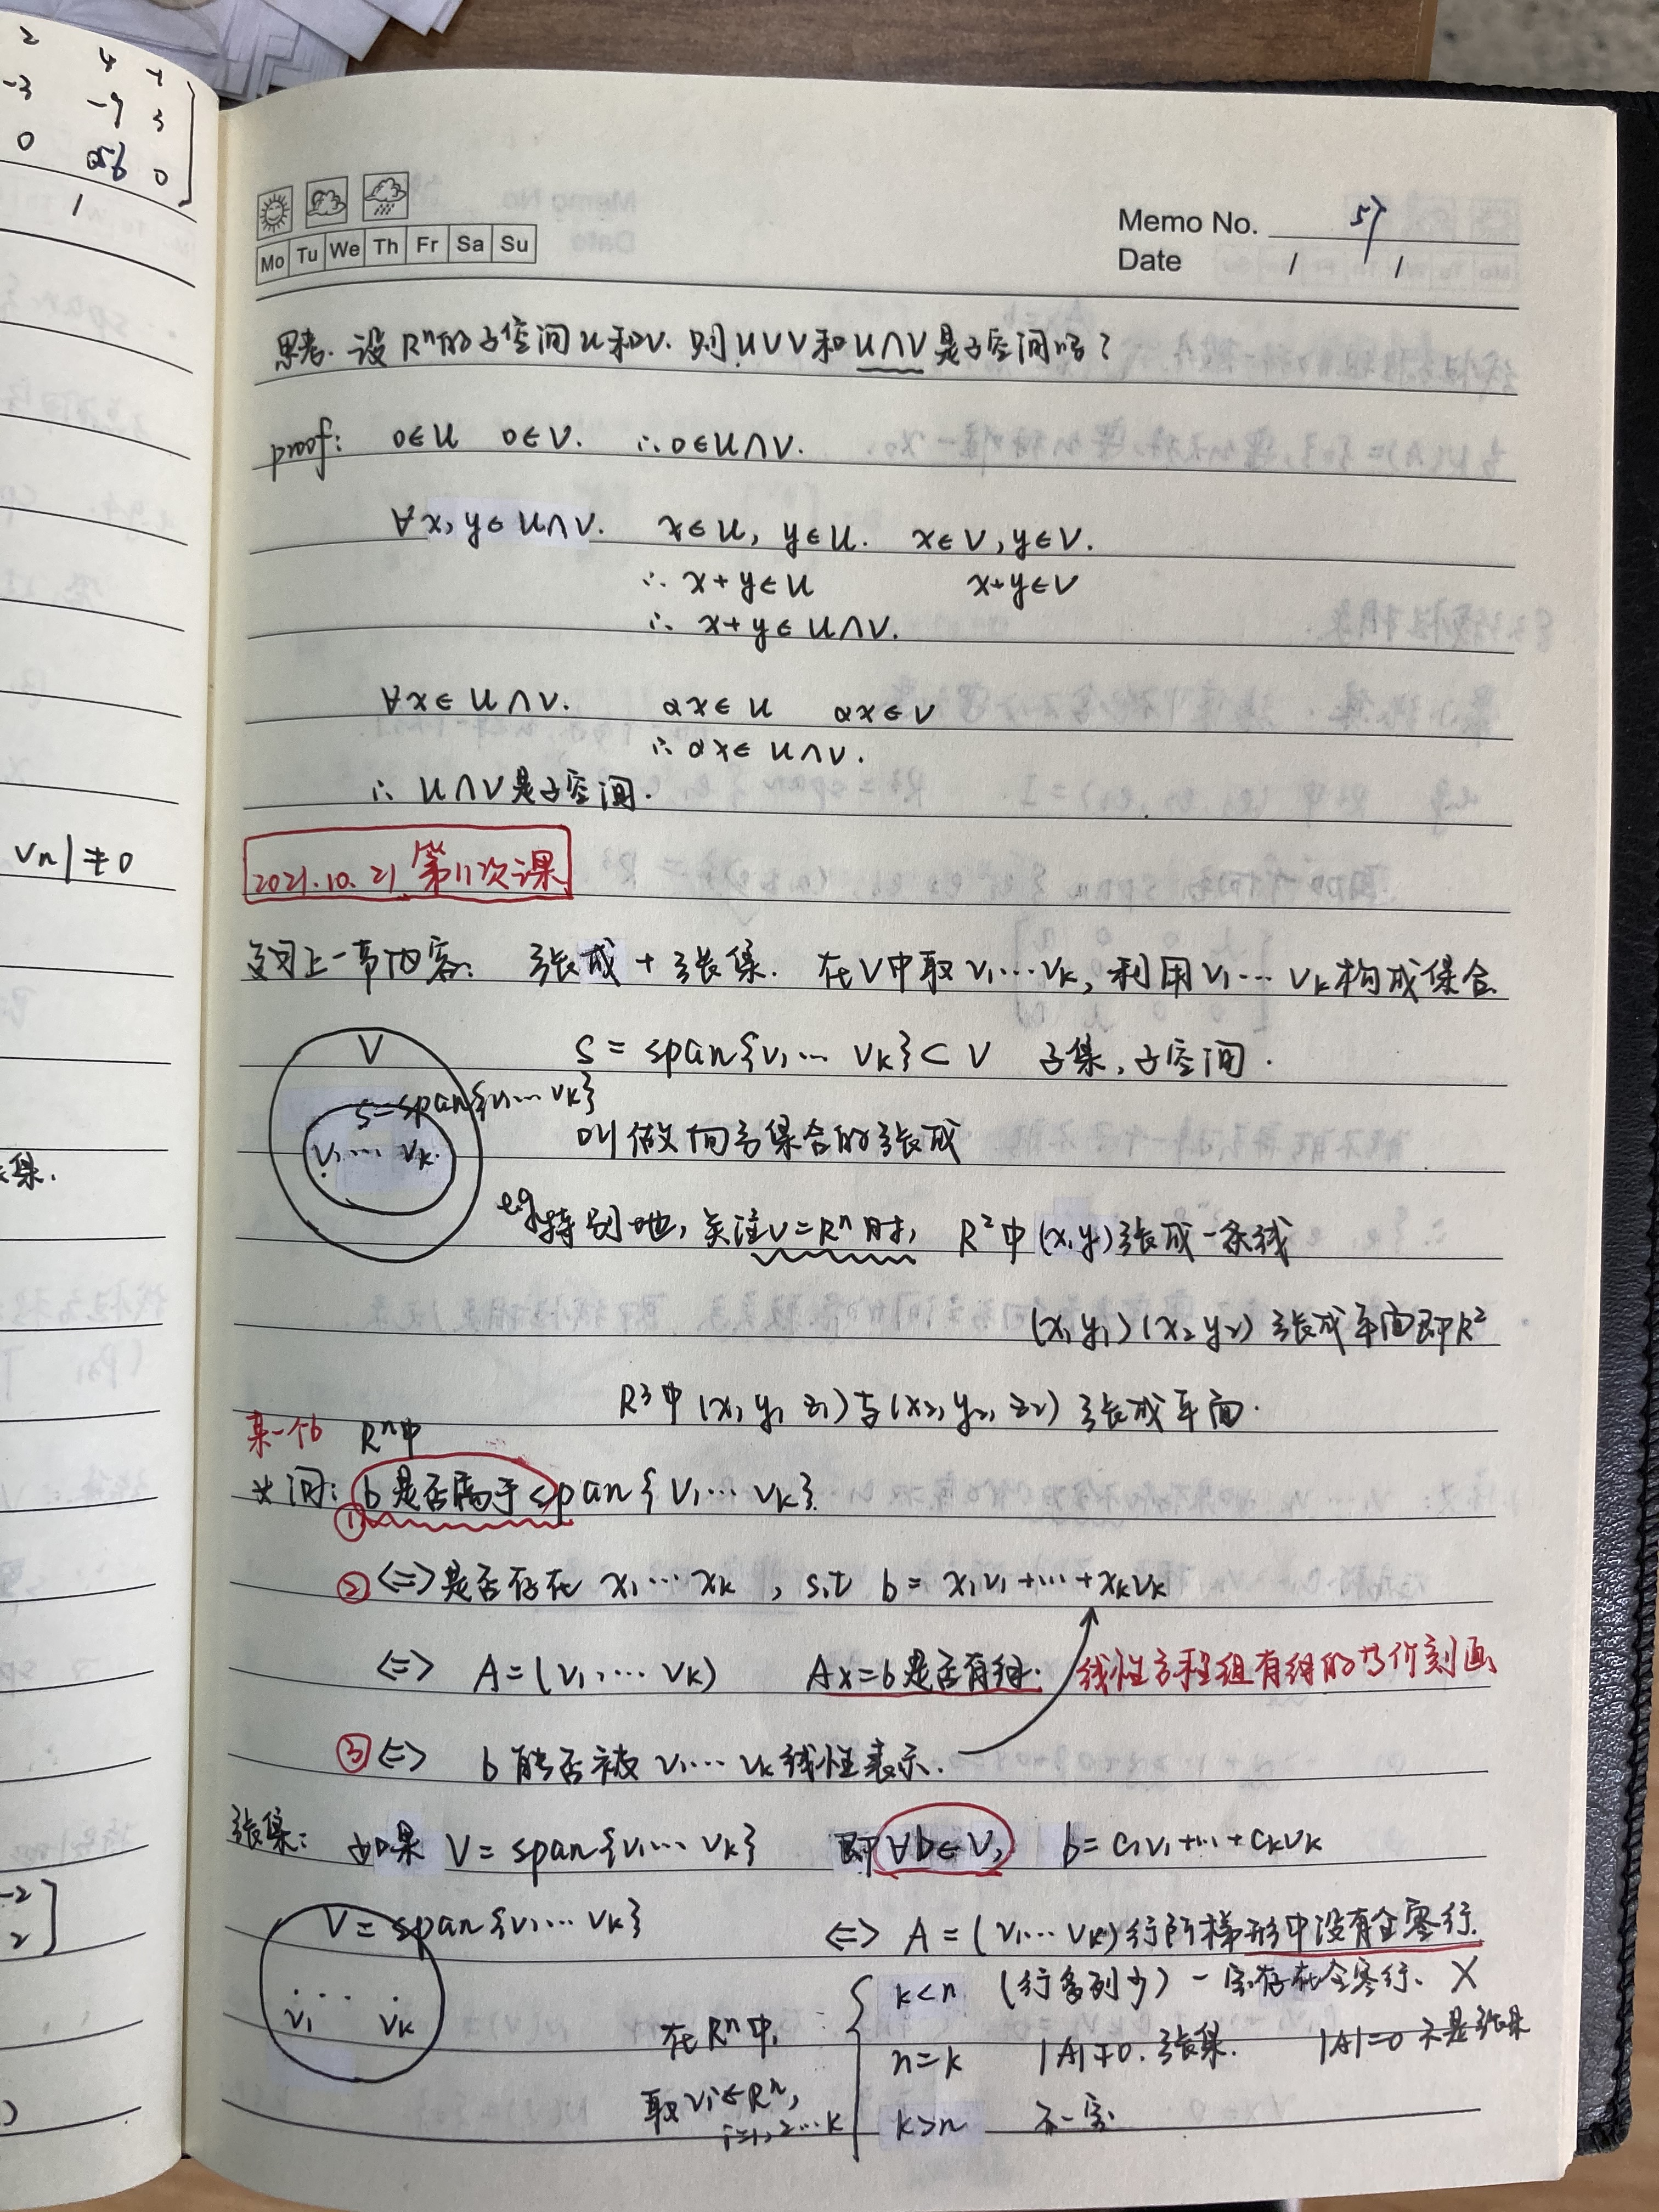 2 4 -1
-3 -9 3
0 0
1
vn| ≠ 0
集.
-2
2
Mo Tu We Th Fr Sa Su
Memo No. 57
Date / /
思考. 设Rⁿ的子空间U和V. 则U∪V和U∩V是子空间吗?
proof: 0∈U 0∈V. ∴0∈U∩V.
∀x, y∈U∩V. x∈U, y∈U. x∈V, y∈V.
∴ x+y∈U x+y∈V
∴ x+y∈U∩V.
∀x∈U∩V. αx∈U αx∈V
∴ αx∈U∩V.
∴ U∩V是子空间.
2021.10.21 第11次课
复习上一节内容: 张成 + 张集. 在V中取v₁…vₖ, 利用v₁…vₖ构成集合
V
S = span{v₁…vₖ}⊂V 子集, 子空间.
S=span{v₁…vₖ}
v₁… vₖ.
叫做向量集合的张成
eg 特别地, 关注V=Rⁿ时, R²中(x,y)张成一条线
(x₁y₁)(x₂y₂)张成平面即R²
R³中(x₁ y₁ z₁)与(x₂, y₂, z₂)张成平面.
某一个b Rⁿ中
问: b是否属于span{v₁…vₖ}.
① 
② <=> 是否存在 x₁…xₖ, s.t b = x₁v₁+…+xₖvₖ
<=> A=(v₁,…vₖ) Ax=b是否有解. 线性方程组有解的等价刻画
③ <=> b能否被v₁…vₖ线性表示.
张集: 如果 V = span{v₁…vₖ} 即∀b∈V, b=c₁v₁+…+cₖvₖ
V=span{v₁…vₖ}
<=> A=(v₁…vₖ)行阶梯形中没有全零行.
v₁ … vₖ
在Rⁿ中,
取vi∈Rⁿ,
i=1,2…k
k<n (行多列少) 一定存在全零行. X
n=k |A|≠0. 张集. |A|=0 不是张集
k>n 不一定.